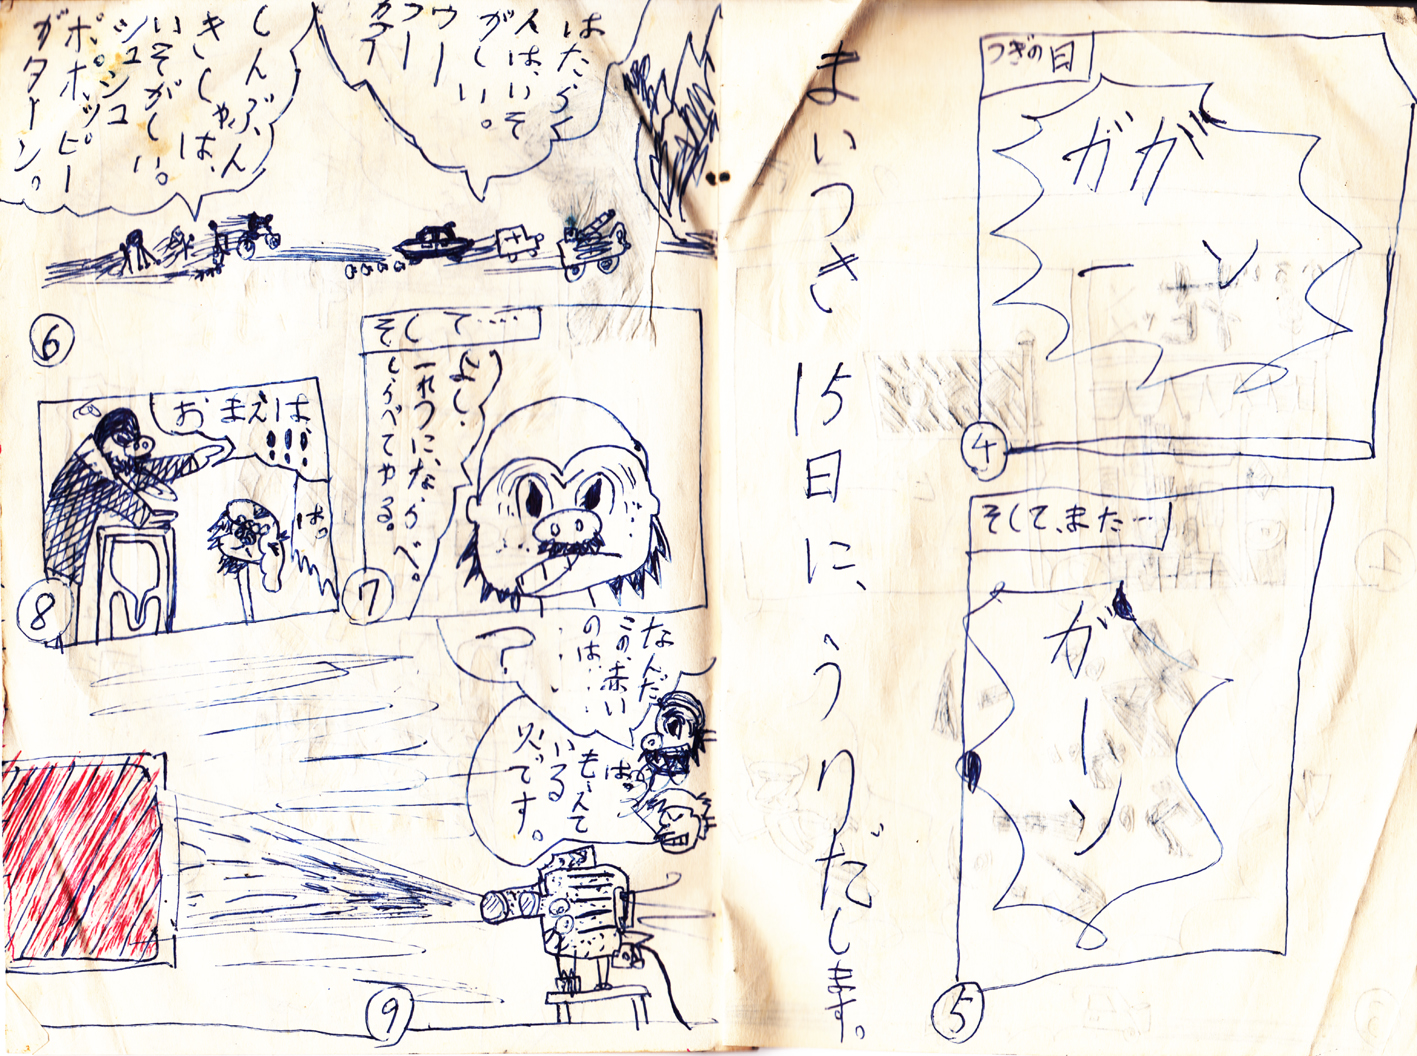 つぎの日
ガガ
ーン
④
そして、また…
がーン
⑤
まいつき15日に、うりだします。
はたらく
人は、いそ
がしい。
ウー
しんぶん
きしゃは、
いそがしい。
シュシュ
ポポッピー
ガターン。
⑥
そして……
よし、
一れつに、ならべ。
しらべてやる。
⑦
おまえは、
!!!
はっ
⑧
なんだ
この、赤い
のは……
?
は。
もえて
いる
火です。
⑨